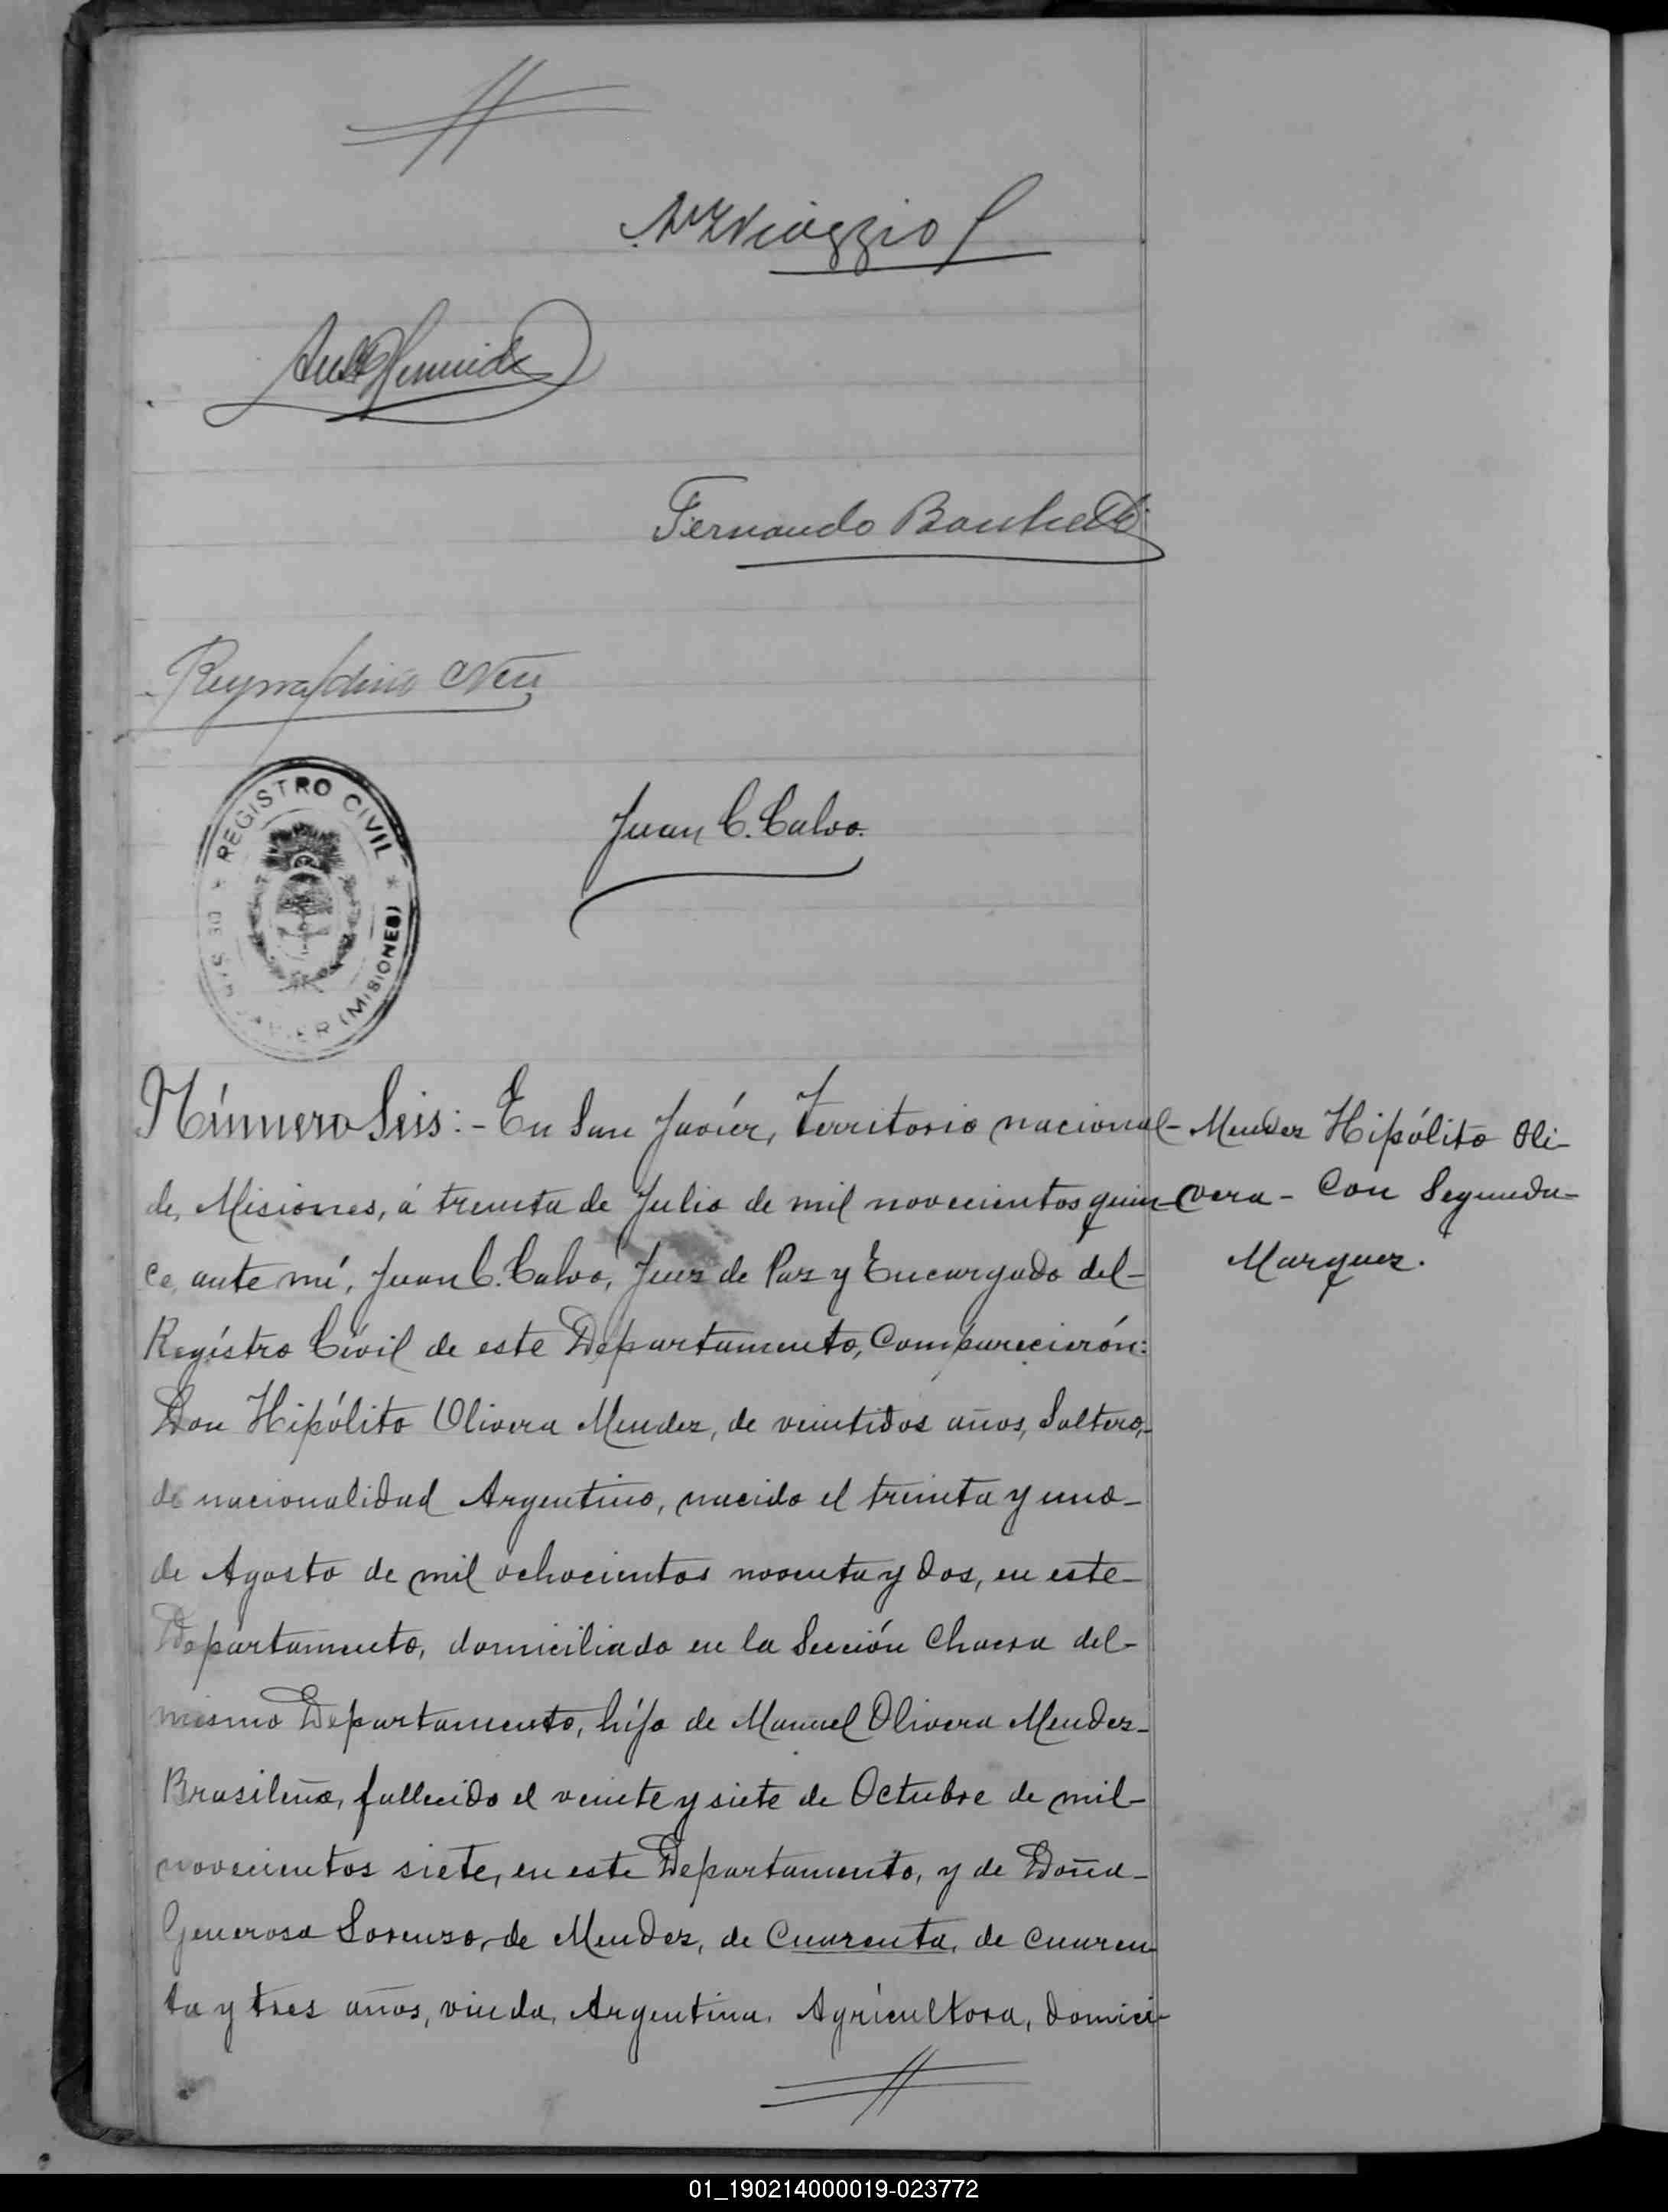 Viaggio
Fernando
Reynaldino Neu
REGISTRO CIVIL
DE SAN JAVIER (MISIONES)
Juan C. Calvo.
Número Seis:- En San Javiér, Territorio nacional-
de, Misiones, á treinta de Julio de mil novecientos quin-
ce, ante mí, Juan C. Calvo, Juez de Paz y Encargado del-
Regístro Cívil de este Departamento, Comparecierón:
Don Hipólito Olivera Mendez, de veintidos años, Soltero,-
de nacionalidad Argentino, nacido el treinta y uno-
de Agosto de mil ochocientos noventa y dos, en este-
Departamento, domiciliado en la Sección Chacra del-
mismo Departamento, hijo de Manuel Olivera Mendez-
Brasileño, fallecido el veinte y siete de Octubre de mil-
novecientos siete, en este Departamento, y de Doña-
Generosa Lorenzo, de Mendez, de Cuarenta, de cuaren-
ta y tres años, viuda, Argentina, Agrícultora, domici-
Mendez Hipólito Oli-
vera - Con Segunda-
Marquez.
01_190214000019-023772